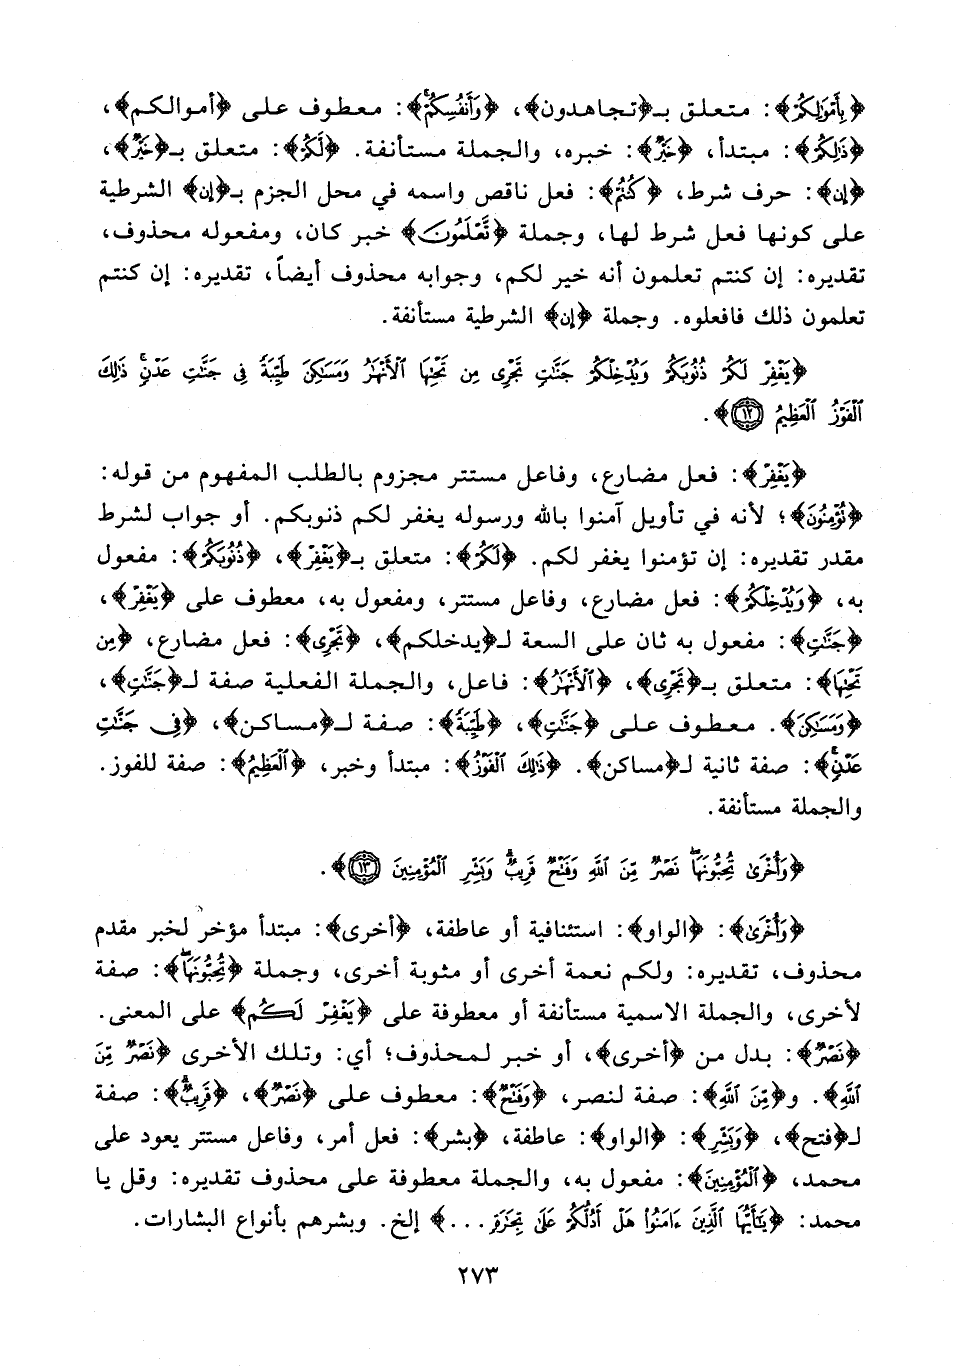 ﴿بِأَمْوَٰلِكُمْ﴾: متعلق بـ﴿تجاهدون﴾، ﴿وَأَنفُسِكُمْ ۚ﴾: معطوف على ﴿أموالكم﴾،
﴿ذَٰلِكُمْ﴾: مبتدأ، ﴿خَيْرٌ﴾: خبره، والجملة مستأنفة. ﴿لَّكُمْ﴾: متعلق بـ﴿خَيْرٌ﴾،
﴿إن﴾: حرف شرط، ﴿كُنتُمْ﴾: فعل ناقص واسمه في محل الجزم بـ﴿إن﴾ الشرطية
على كونها فعل شرط لها، وجملة ﴿تَعْلَمُونَ﴾ خبر كان، ومفعوله محذوف،
تقديره: إن كنتم تعلمون أنه خير لكم، وجوابه محذوف أيضاً، تقديره: إن كنتم
تعلمون ذلك فافعلوه. وجملة ﴿إن﴾ الشرطية مستأنفة.
﴿يَغْفِرْ لَكُمْ ذُنُوبَكُمْ وَيُدْخِلْكُمْ جَنَّٰتٍ تَجْرِى مِن تَحْتِهَا ٱلْأَنْهَٰرُ وَمَسَٰكِنَ طَيِّبَةً فِى جَنَّٰتِ عَدْنٍ ۚ ذَٰلِكَ
ٱلْفَوْزُ ٱلْعَظِيمُ ١٢﴾.
﴿يَغْفِرْ﴾: فعل مضارع، وفاعل مستتر مجزوم بالطلب المفهوم من قوله:
﴿تُؤْمِنُونَ﴾؛ لأنه في تأويل آمنوا بالله ورسوله يغفر لكم ذنوبكم. أو جواب لشرط
مقدر تقديره: إن تؤمنوا يغفر لكم. ﴿لَكُمْ﴾: متعلق بـ﴿يَغْفِرْ﴾، ﴿ذُنُوبَكُمْ﴾: مفعول
به، ﴿وَيُدْخِلْكُمْ﴾: فعل مضارع، وفاعل مستتر، ومفعول به، معطوف على ﴿يَغْفِرْ﴾،
﴿جَنَّٰتٍ﴾: مفعول به ثان على السعة لـ﴿يدخلكم﴾، ﴿تَجْرِى﴾: فعل مضارع، ﴿مِن
تَحْتِهَا﴾: متعلق بـ﴿تَجْرِى﴾، ﴿ٱلْأَنْهَٰرُ﴾: فاعل، والجملة الفعلية صفة لـ﴿جَنَّٰتٍ﴾،
﴿وَمَسَٰكِنَ﴾. معطوف على ﴿جَنَّٰتٍ﴾، ﴿طَيِّبَةً﴾: صفة لـ﴿مساكن﴾، ﴿فِى جَنَّٰتِ
عَدْنٍ ۚ﴾: صفة ثانية لـ﴿مساكن﴾. ﴿ذَٰلِكَ ٱلْفَوْزُ﴾: مبتدأ وخبر، ﴿ٱلْعَظِيمُ﴾: صفة للفوز.
والجملة مستأنفة.
﴿وَأُخْرَىٰ تُحِبُّونَهَا ۖ نَصْرٌ مِّنَ ٱللَّهِ وَفَتْحٌ قَرِيبٌ ۗ وَبَشِّرِ ٱلْمُؤْمِنِينَ ١٣﴾.
﴿وَأُخْرَىٰ﴾: ﴿الواو﴾: استئنافية أو عاطفة، ﴿أخرى﴾: مبتدأ مؤخر لخبر مقدم
محذوف، تقديره: ولكم نعمة أخرى أو مثوبة أخرى، وجملة ﴿تُحِبُّونَهَا ۖ﴾: صفة
لأخرى، والجملة الاسمية مستأنفة أو معطوفة على ﴿يَغْفِرْ لَكُمْ﴾ على المعنى.
﴿نَصْرٌ﴾: بدل من ﴿أخرى﴾، أو خبر لمحذوف؛ أي: وتلك الأخرى ﴿نَصْرٌ مِّنَ
ٱللَّهِ﴾. و﴿مِّنَ ٱللَّهِ﴾: صفة لنصر، ﴿وَفَتْحٌ﴾: معطوف على ﴿نَصْرٌ﴾، ﴿قَرِيبٌ ۗ﴾: صفة
لـ﴿فتح﴾، ﴿وَبَشِّرِ﴾: ﴿الواو﴾: عاطفة، ﴿بشر﴾: فعل أمر، وفاعل مستتر يعود على
محمد، ﴿ٱلْمُؤْمِنِينَ﴾: مفعول به، والجملة معطوفة على محذوف تقديره: وقل يا
محمد: ﴿يَٰٓأَيُّهَا ٱلَّذِينَ ءَامَنُوا۟ هَلْ أَدُلُّكُمْ عَلَىٰ تِجَٰرَةٍ ...﴾ إلخ. وبشرهم بأنواع البشارات.
٢٧٣